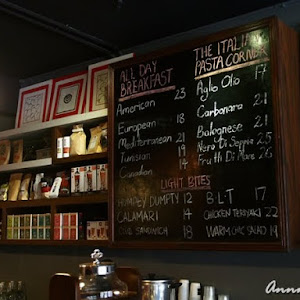 ALL DAY
BREAKFAST
American 23
European 18
Mediterranean 21
Tunisian 19
Canadian 14
THE ITALIAN
PASTA CORNER
Aglio Olio 17
Carbonara 21
Bolognese 21
Nero Di Seppie 25
Frutti Di Mare 26
LIGHT BITES
HUMPEY DUMPTY 14
CALAMARI 14
CLUB SANDWICH 18
B·L·T 17
CHICKEN TERIYAKI 22
WARM CHIC SALAD 19